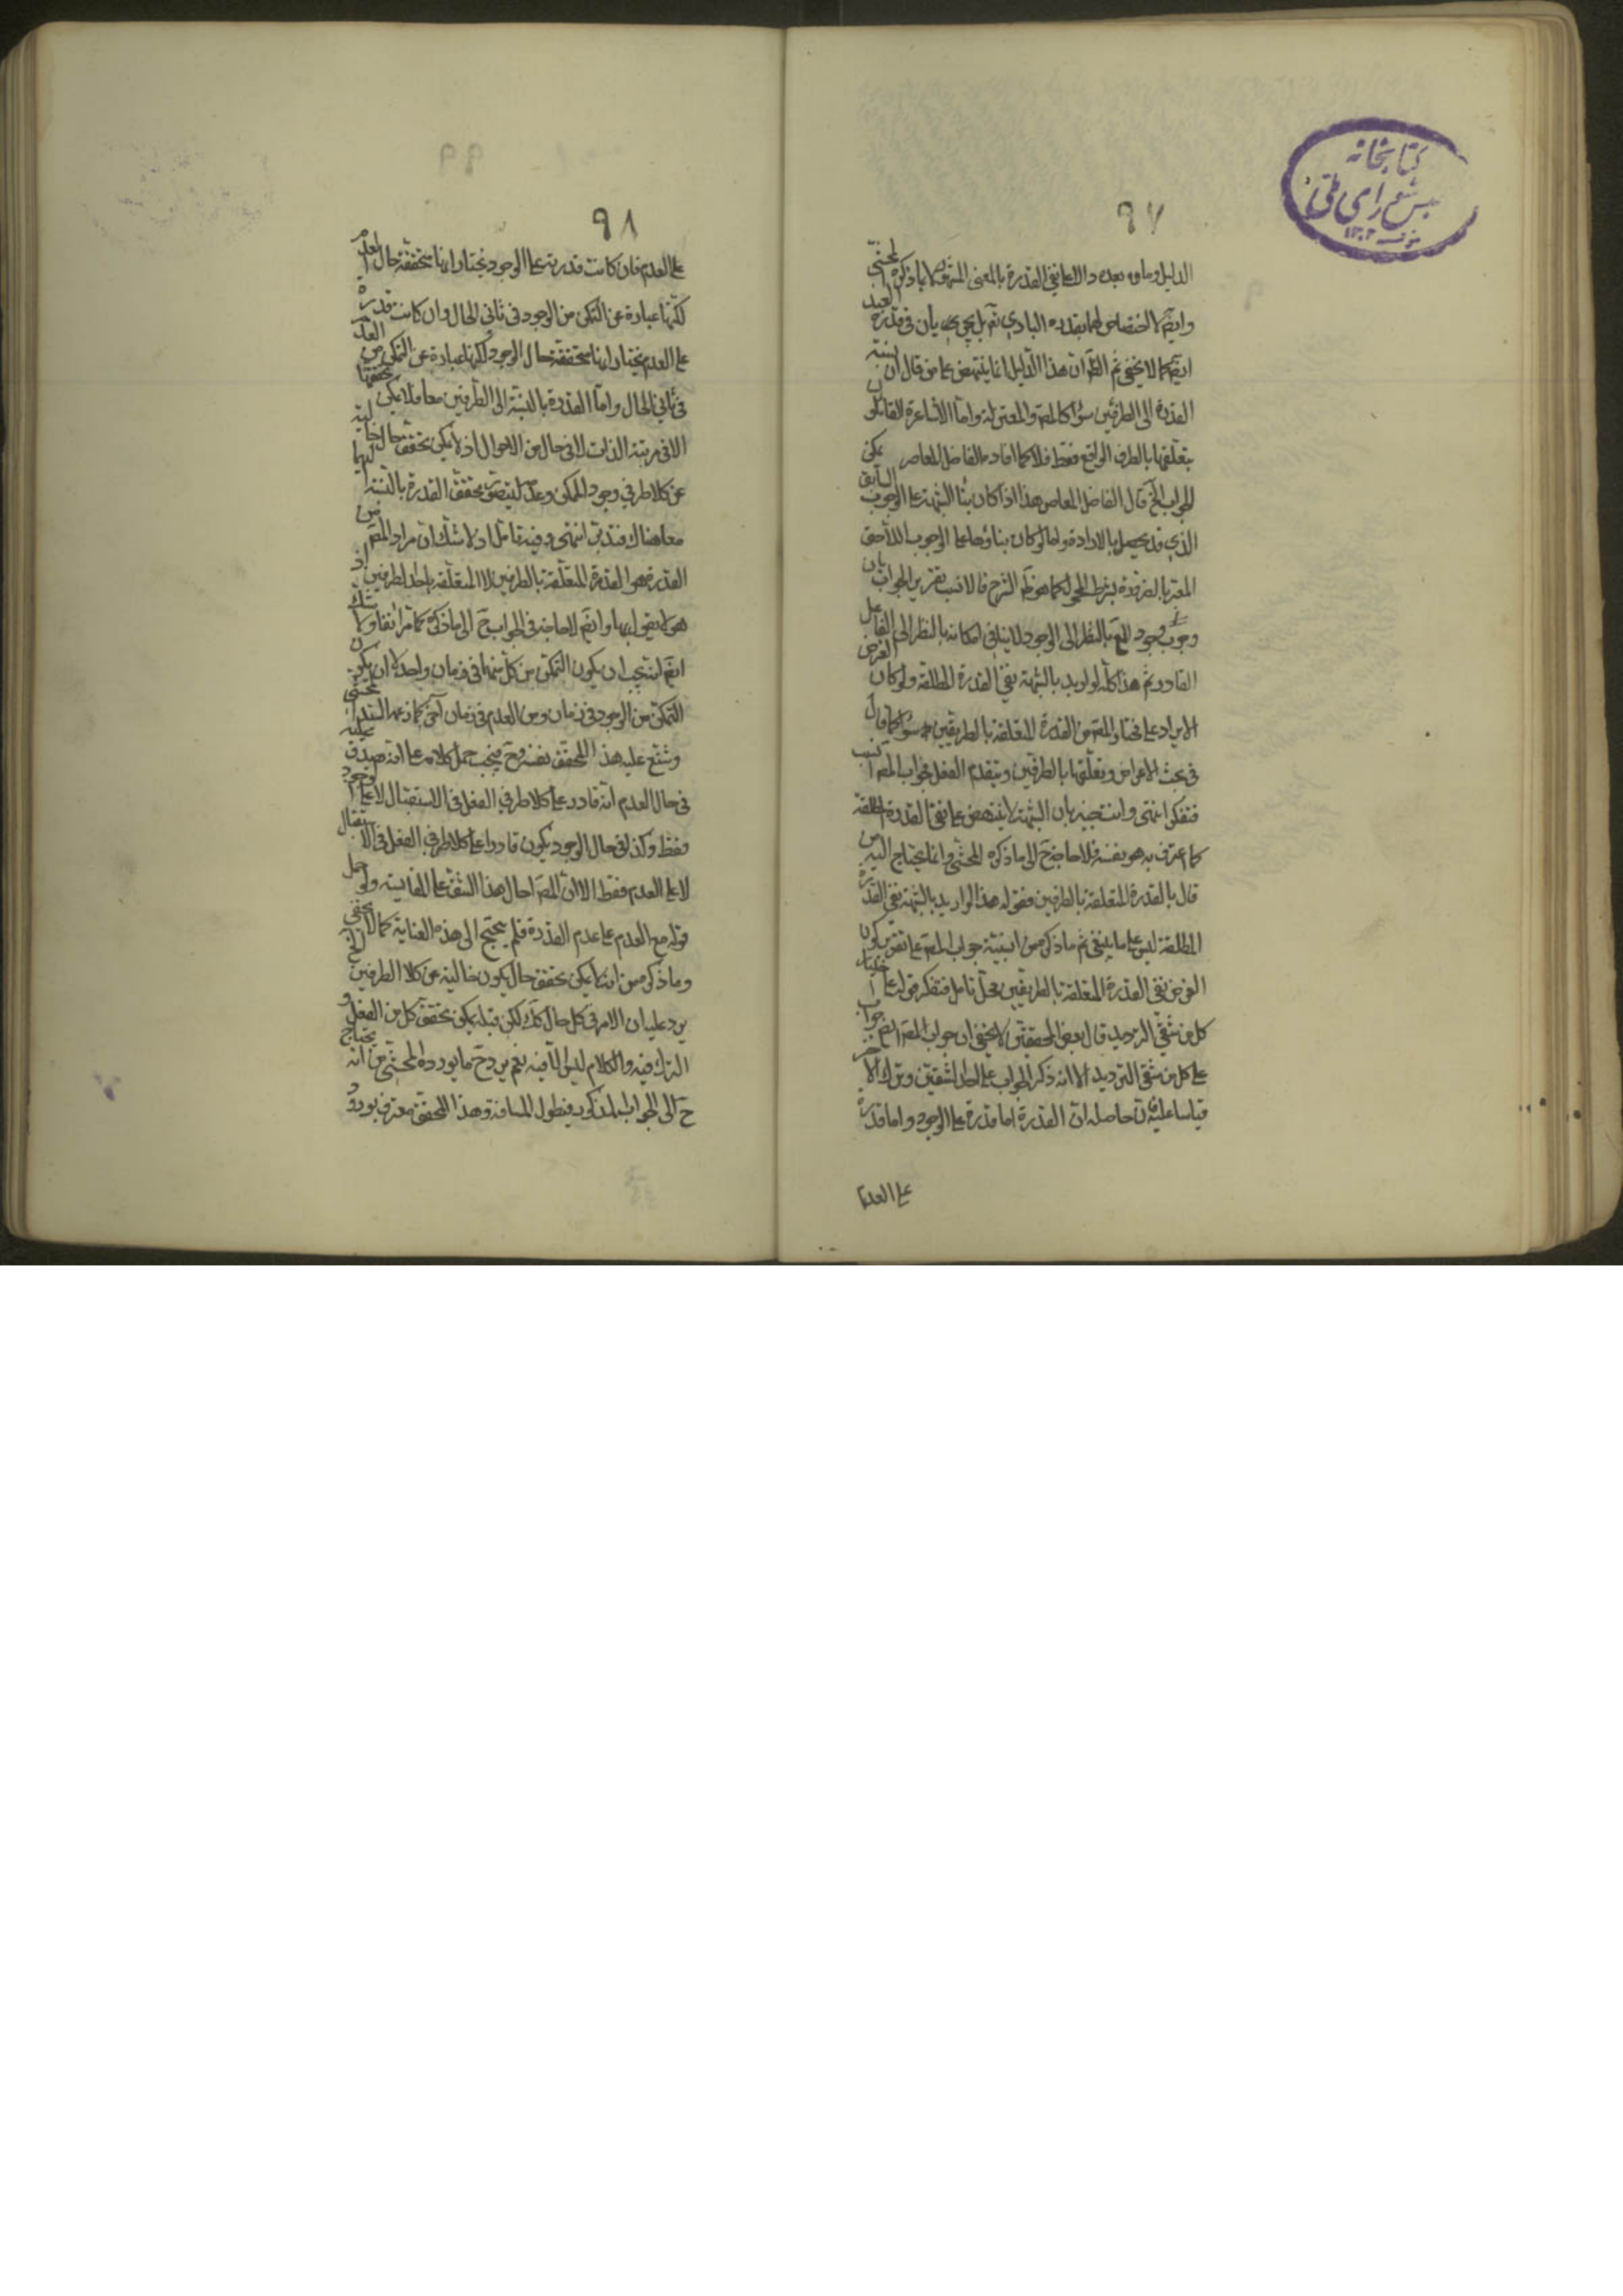 كتابخانه
مجلس شورای ملی
٩٧
الدليل وما وه بعده دالا على نفى القدرة بالمعنى المتعارف لا بما ذكره المحشى
وايضا لا اختصاص لهما بقدرة البارى تم بل يجرى بان فى قدرة العبد
ايضا كما لا يخفى ثم الظ ان هذا الدليل انما ينتهض على من قال ان نسبة
القدرة الى الطرفين سواء كالمص والمعتزلة واما الاشاعرة القائلون
بتعلقها بالطرف الواقع فقط فلا كما افاده الفاضل المعاصر يمكن
الجواب الخ قال الفاضل المعاصر هذا اذا كان بناء الشبهة على الوجوب السابق
الذى قد يحصل بالارادة واما لو كان بناؤها على الوجوب اللاحق
المعتبر بالضرورة بشرط المحمول كما هو ظ الشرح فالانسب تقرير الجواب بان
وجوب وجود بالنظر الى الوجود لا ينافى امكانه بالنظر الى الفاعل
القادر ثم هذا كله لو اريد بالشبهة نفى القدرة المطلقة ولو كان الغرض
الايراد على مختار المص من القدرة المتعلقة بالطرفين سواء كما قال
فى بحث الاعراض وتعلقها بالطرفين ويتقدم الفعل فجواب المص انسب
فتفكر انتهى وانت خبير بان الشبهة لا ينتهض على نفى القدرة المطلقة
كما اعترف به هو بنفسه فلا حاجة ح الى ما ذكره المحشى وانما يحتاج اليه من
قال بالقدرة المتعلقة بالطرفين فقوله هذا لو اريد بالشبهة نفى القدرة
المطلقة ليس على ما ينبغى ثم ما ذكره من انسبية جواب المص على تقدير كون
الغرض نفى القدرة المتعلقة بالطرفين محل تامل فتفكر قوله على اختيار
كل من شقى الترديد قال بعض المحققين لا يخفى ان جواب المص ايضا جواب
على كل من شقى الترديد الا انه ذكر الجواب على احد الشقين وترك الاخر
قياسا عليه فان حاصله ان القدرة اما قدرة على الوجود واما قدرة
على العدم
٩٨
على العدم فان كانت قدرته على الوجود نختار انها متحققة حال العدم
لكنها عبارة عن التمكن من الوجود فى ثانى الحال وان كانت قدرة
على العدم نختار انها متحققة حال الوجود لكنها عبارة عن التمكن من العدم
فى ثانى الحال واما القدرة بالنسبة الى الطرفين معا فلا يمكن تحققها
الا فى مرتبة الذات لا فى حال من الاحوال اذ لا يمكن تحقق حال خالية
عن كلا طرفى وجود الممكن وعدمه ليتصور تحقق القدرة بالنسبة اليهما
معا هناك فتدبر انتهى وفيه تامل اذ لا شك ان مراد المص من
القدرة هو القدرة المتعلقة بالطرفين لا المتعلقة باحد الطرفين اذ
هو لا يقول بها وايضا لا حاجة فى الجواب ح الى ما ذكره كما مر انفا ولا شك
انه لم يجب ان يكون التمكن من كل منهما فى زمان واحد لا ان يكون
التمكن من الوجود فى زمان ومن العدم فى زمان آخر كما زعمه السيد المحشى
وشنع عليه هذا المحقق بنفسه وح فيجب حمل كلامه على انه يصدق عليه
فى حال العدم انه قادر على كلا طرفى الفعل فى الاستقبال لا على الوجود
فقط وكذا فى حال الوجود يكون قادرا على كلا طرفى الفعل فى الاستقبال
لا على العدم فقط الا ان المص احال هذا الشق على المقايسة ولو حمل
قوله مع العدم على عدم القدرة فلم يحتج الى هذه العناية كما لا يخفى
وما ذكره من انه لا يمكن تحقق حال يكون خالية عن كلا الطرفين الخ
يرد عليه ان الامر فى كل حال كك لكن قبله يمكن تحقق كل من الفعل و
الترك فيه والكلام ليس الا فيه نعم يرد ح ما يورده المحشى من انه يحتاج
ح الى الجواب المذكور فيطول المسافة وهذا المحقق معترف بورود